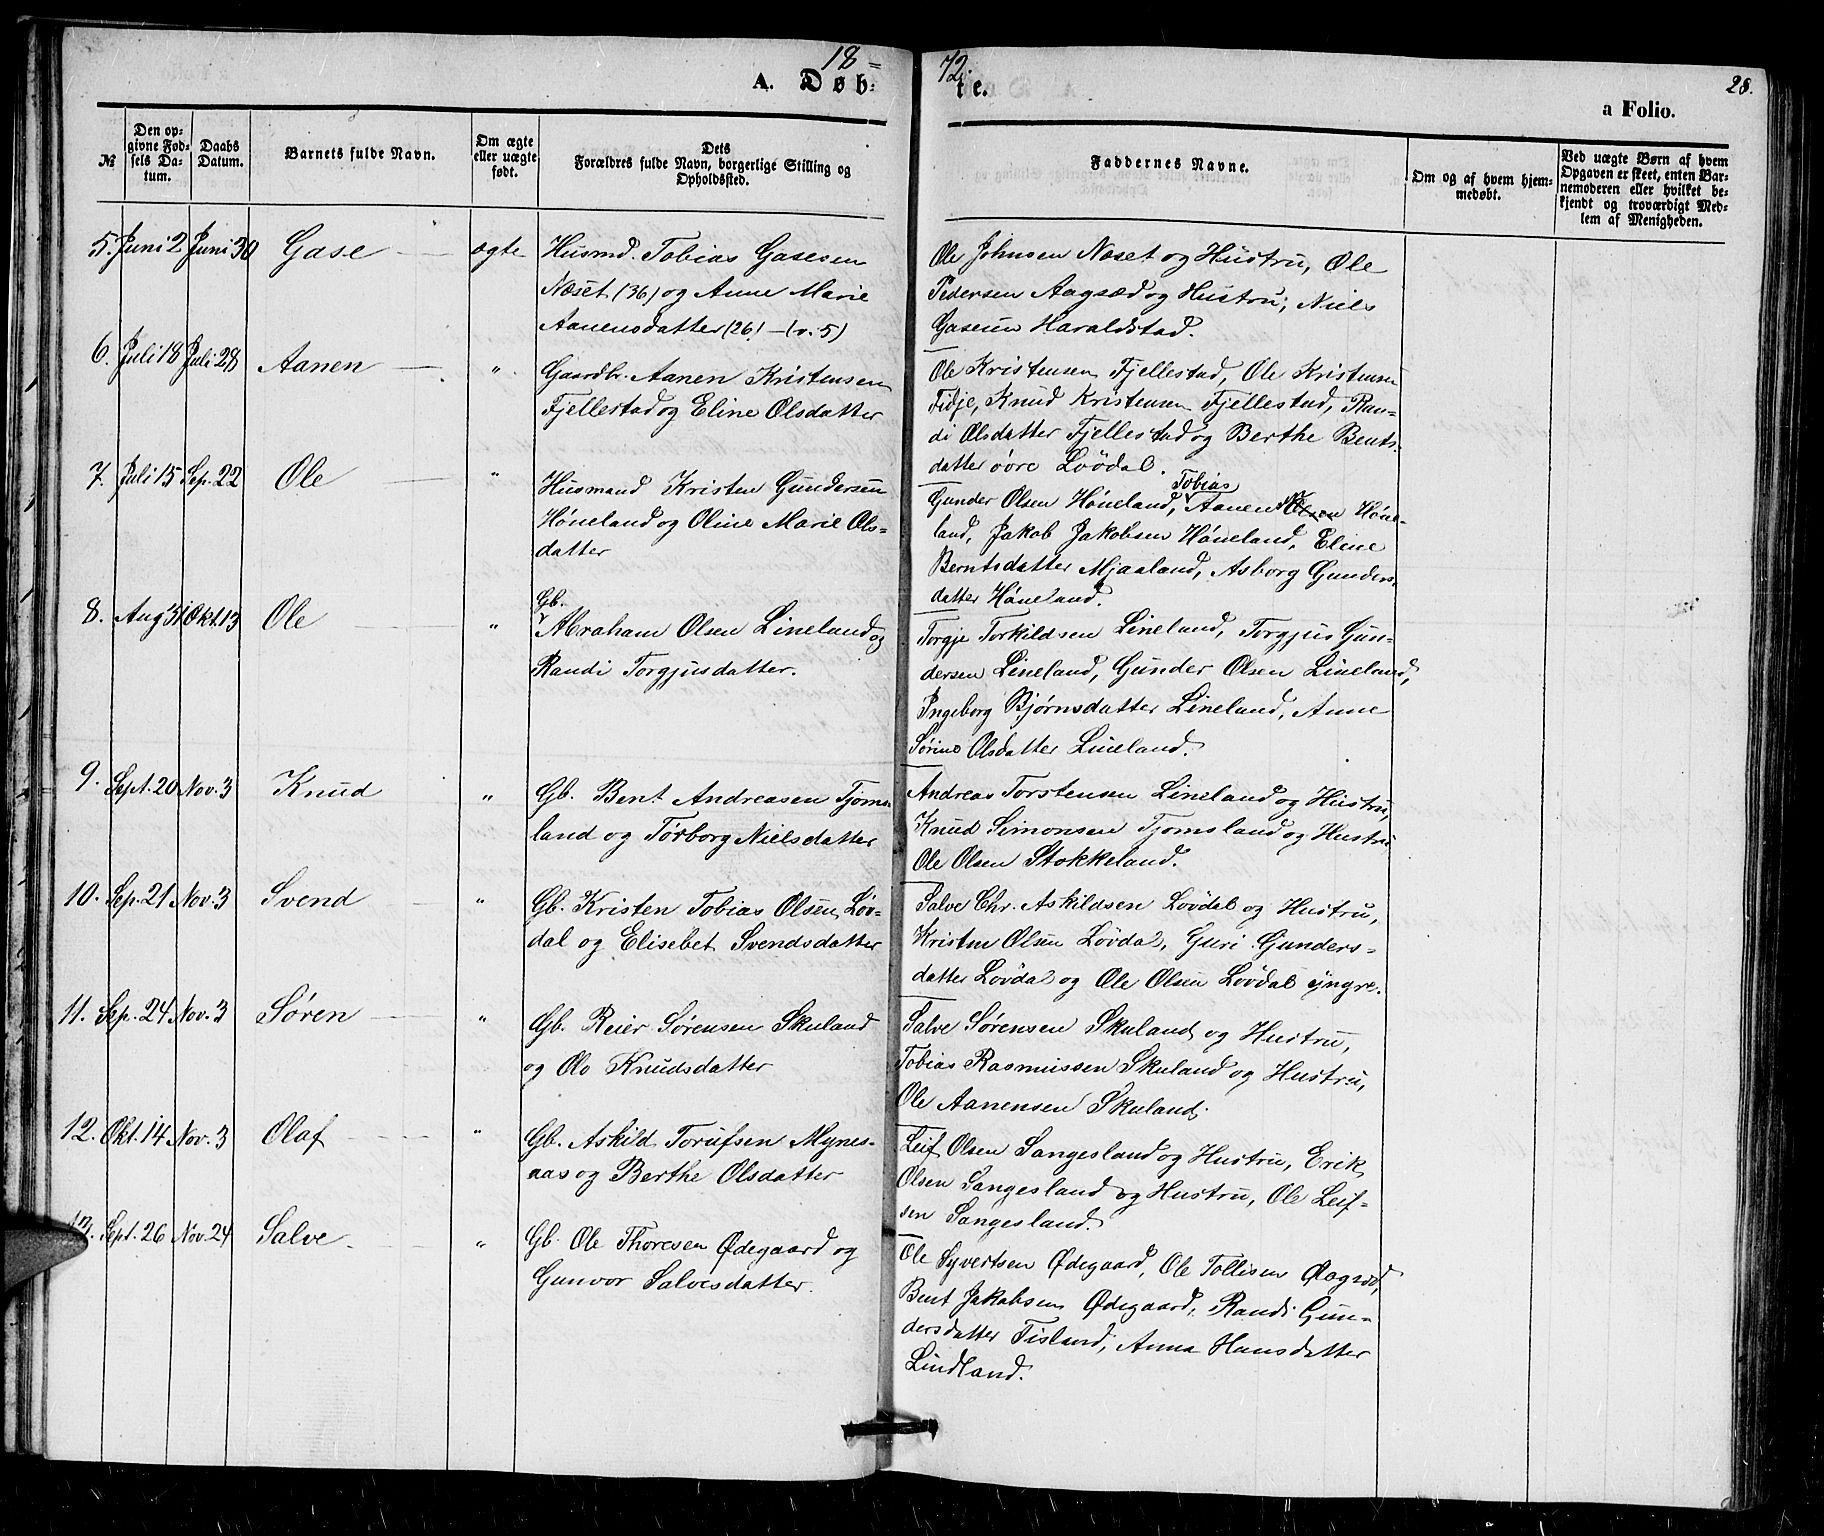 18=72.
A. Døb=te.
28.
a Folio.
№
Den op-
givne Fød-
sels Da-
tum.
Daabs
Datum.
Barnets fulde Navn.
Om ægte
eller uægte
født.
Dets
Forældres fulde Navn, borgerlige Stilling og
Opholdssted.
Faddernes Navne.
Om og af hvem hjem-
medøbt.
Ved uægte Børn af hvem
Opgaven er skeet, enten Bar-
nemoderen eller hvilket be-
kjendt og troværdigt Med-
lem af Menigheden.
5. Juni 2 Juni 30 Gase ægte
Husmd. Tobias Gasesen
Næset (36) og Anne Marie
Aanensdatter (26) – (v. 5)
Ole Johnsen Næset og Hustru, Ole
Pedersen Aagsæd og Hustru, Niels
Gasesen Haraldstad.
6. Juli 18 Juli 28 Aanen "
Gaardbr. Aanen Kristensen
Fjellestad og Eline Olsdatter
Ole Kristensen Fjellestad, Ole Kristensen
Fidje, Knud Kristensen Fjellestad, Ran-
di Olsdatter Fjellestad og Berthe Bents-
datter øvre Løvdal.
7. Juli 15 Sep. 22 Ole "
Husmand Kristen Gundersen
Høneland og Oline Marie Ols-
datter
Tobias
Gunder Olsen Høneland, Aanen Høne-
land, Jakob Jakobsen Høneland, Eline
Berntsdatter Mjaaland, Asborg Gunders-
datter Høneland.
8. Aug 31 Okt. 13 Ole "
Gb.
Abraham Olsen Lineland og
Randi Torgjusdatter.
Torgje Torkildsen Lineland, Torgjus Gun-
dersen Lineland, Gunder Olsen Lineland,
Ingeborg Bjørnsdatter Lineland, Anne
Sørine Olsdatter Lineland.
9. Sept. 20 Nov. 3 Knud "
Gb. Bent Andreasen Tjoms-
land og Torborg Nielsdatter
Andreas Torstensen Lineland og Hustru,
Knud Simonsen Tjomsland og Hustru
Ole Olsen Stokkeland.
10. Sep. 21 Nov. 3 Svend "
Gb. Kristen Tobias Olsen Løv-
dal og Elisebet Svendsdatter
Salve Chr. Askildsen Løvdal og Hustru,
Kristen Olsen Løvdal, Guri Gunders-
datter Løvdal og Ole Olsen Løvdal yngre.
11. Sep. 24 Nov. 3 Søren "
Gb. Reier Sørensen Skuland
og Olo Knudsdatter
Salve Sørensen Skuland og Hustru,
Tobias Rasmussen Skuland og Hustru,
Ole Aanensen Skuland.
12. Okt. 14 Nov. 3 Olaf "
Gb. Askild Torufsen Mynes-
aas og Berthe Olsdatter
Leif Olsen Sangesland og Hustru, Erik
Olsen Sangesland og Hustru, Ole Leif-
sen Sangesland.
13. Sept. 26 Nov. 24 Salve "
Gb. Ole Thoresen Ødegaard og
Gunvor Salvesdatter.
Ole Syvertsen Ødegaard, Ole Tollisen
Bent Jakobsen Ødegaard, Randi Gun-
dersdatter Fisland, Anna Hansdatter
Lindland.